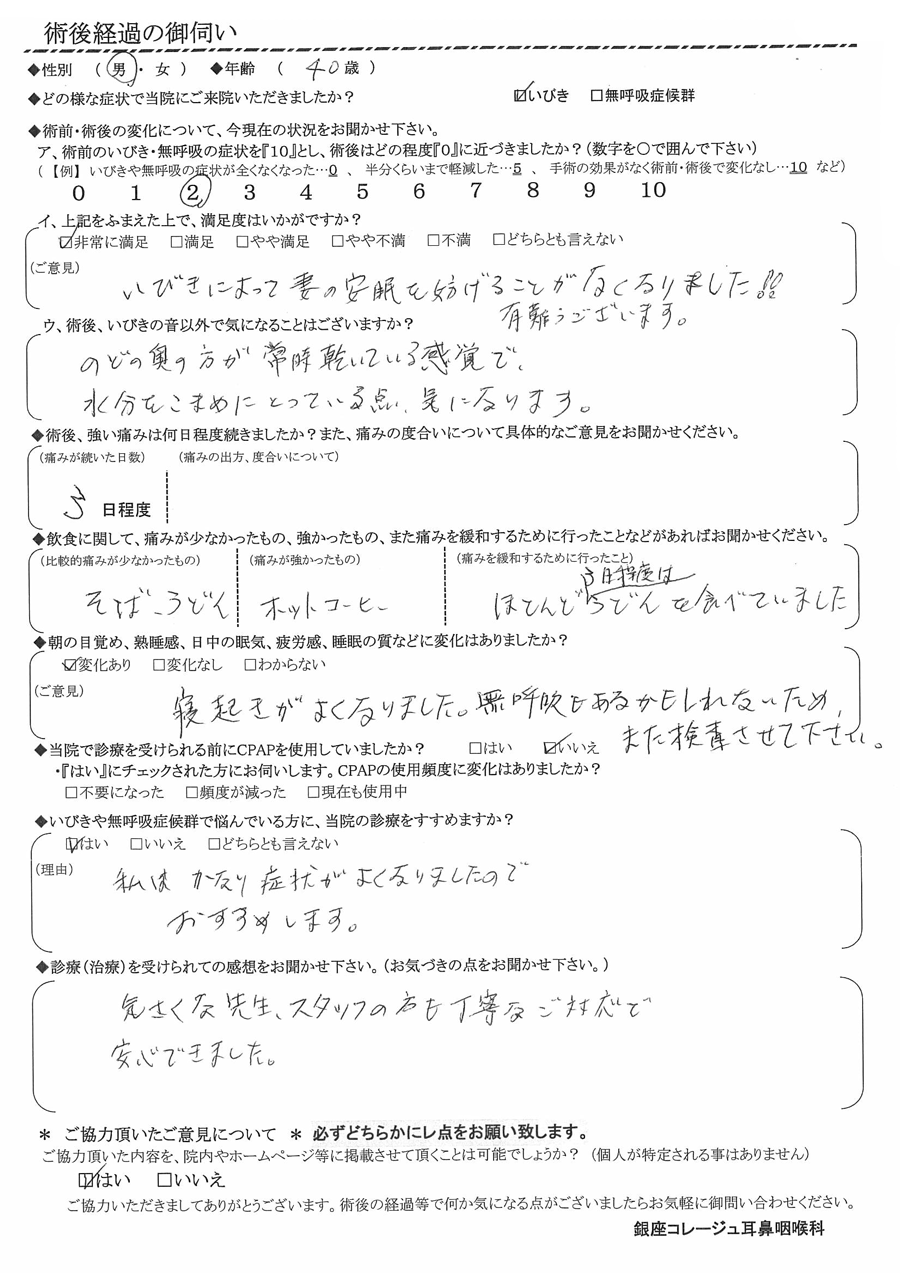 術後経過の御伺い
◆性別 ( 男 ・ 女 ) ◆年齢 ( 40歳 )
◆どの様な症状で当院にご来院いただきましたか? ☑いびき □無呼吸症候群
◆術前・術後の変化について、今現在の状況をお聞かせ下さい。
ア、術前のいびき・無呼吸の症状を『10』とし、術後はどの程度『0』に近づきましたか?(数字を〇で囲んで下さい)
(【例】 いびきや無呼吸の症状が全くなくなった…0 、 半分くらいまで軽減した…5 、 手術の効果がなく術前・術後で変化なし…10 など)
0 1 2 3 4 5 6 7 8 9 10
イ、上記をふまえた上で、満足度はいかがですか?
☑非常に満足 □満足 □やや満足 □やや不満 □不満 □どちらとも言えない
(ご意見)
いびきによって妻の安眠を妨げることがなくなりました!!
有難うございます。
ウ、術後、いびきの音以外で気になることはございますか?
のどの奥の方が常時乾いている感覚で、
水分をこまめにとっている点、気になります。
◆術後、強い痛みは何日程度続きましたか?また、痛みの度合いについて具体的なご意見をお聞かせください。
(痛みが続いた日数) (痛みの出方、度合いについて)
3 日程度
◆飲食に関して、痛みが少なかったもの、強かったもの、また痛みを緩和するために行ったことなどがあればお聞かせください。
(比較的痛みが少なかったもの) (痛みが強かったもの) (痛みを緩和するために行ったこと)
3日程度は
そば、うどん ホットコーヒー ほとんどうどんを食べていました
◆朝の目覚め、熟睡感、日中の眠気、疲労感、睡眠の質などに変化はありましたか?
☑変化あり □変化なし □わからない
(ご意見)
寝起きがよくなりました。無呼吸もあるかもしれないため、
また検査させて下さい。
◆当院で診療を受けられる前にCPAPを使用していましたか? □はい ☑いいえ
・『はい』にチェックされた方にお伺いします。CPAPの使用頻度に変化はありましたか?
□不要になった □頻度が減った □現在も使用中
◆いびきや無呼吸症候群で悩んでいる方に、当院の診療をすすめますか?
☑はい □いいえ □どちらとも言えない
(理由)
私は かなり症状がよくなりましたので
おすすめします。
◆診療(治療)を受けられての感想をお聞かせ下さい。(お気づきの点をお聞かせ下さい。)
気さくな先生、スタッフの方も丁寧なご対応で
安心できました。
＊ ご協力頂いたご意見について ＊ 必ずどちらかにレ点をお願い致します。
ご協力頂いた内容を、院内やホームページ等に掲載させて頂くことは可能でしょうか? (個人が特定される事はありません)
☑はい □いいえ
ご協力いただきましてありがとうございます。術後の経過等で何か気になる点がございましたらお気軽に御問い合わせください。
銀座コレージュ耳鼻咽喉科